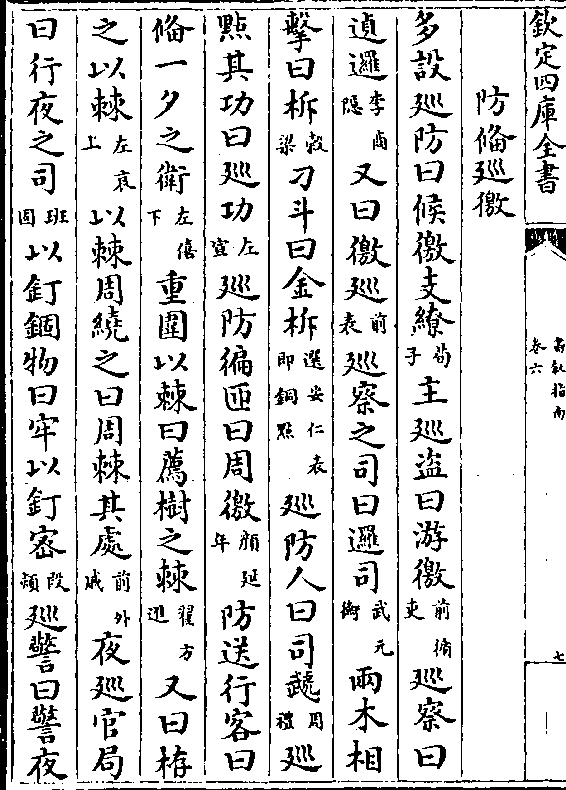 欽定四庫全書
卷六
七
防脩廵徼
多設廵防曰候徼支繚荀子主廵盜曰游徼前循吏廵察曰
邏李商隱又曰徼廵前表廵察之司曰邏司武元衡兩木相
擊曰柝穀梁刀斗曰金柝選安仁表即銅㸃廵防人曰司虣周禮廵
㸃其功曰廵功左宣廵防徧匝曰周徼顔延年防送行客曰
脩一夕之衛左僖下重圍以棘曰薦樹之棘翟方進又曰栫
之以棘左哀上以棘周繞之曰周棘其處前外戚夜廵官局
曰行夜之司班固以釘錮物曰牢以釘宻段熲廵警曰警夜